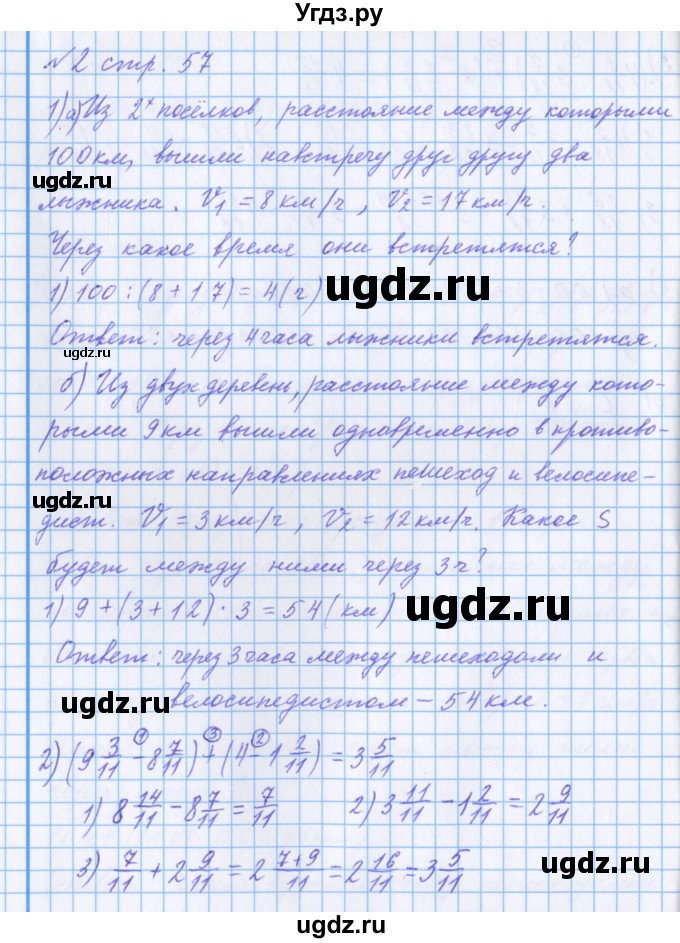 Угдз.ру
№2 стр. 57
1) а) Из 2х посёлков, расстояние между которыми
100 км, вышли навстречу друг другу два
ugdz.ru
лыжника. V₁ = 8 км/ч, V₂ = 17 км/ч.
Через какое время они встретятся?
1) 100 : (8 + 17) = 4 (ч) ugdz.ru
Ответ: через 4 часа лыжники встретятся.
ugdz.ru
б) Из двух деревень, расстояние между кото-
рыми 9 км вышли одновременно в противо-
положных направлениях пешеход и велосипе-
ugdz.ru
дист. V₁ = 3 км/ч, V₂ = 12 км/ч. Какое S
будет между ними через 3 ч?
1) 9 + (3 + 12) · 3 = 54 (км) ugdz.ru
Ответ: через 3 часа между пешеходом и
ugdz.ru велосипедистом – 54 км.
2) (9 3/11 –① 8 7/11) +③ (4 –② 1 2/11) = 3 5/11
1) 8 14/11 – 8 7/11 = 7/11 2) 3 11/11 – 1 2/11 = 2 9/11
3) 7/11 + 2 9/11 = 2 (7+9)/11 = 2 16/11 = 3 5/11
ugdz.ru ugdz.ru
ugdz.ru